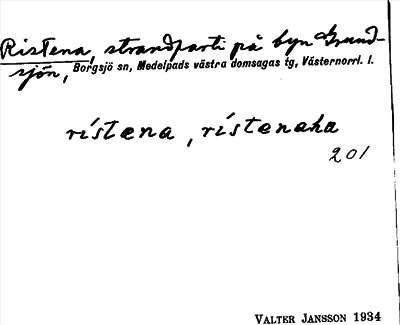 Ristena, strandparti på byn Grund-
sjön, Borgsjö sn, Medelpads västra domsagas tg, Västernorrl. l.
rístena, rístenaha
201
VALTER JANSSON 1934